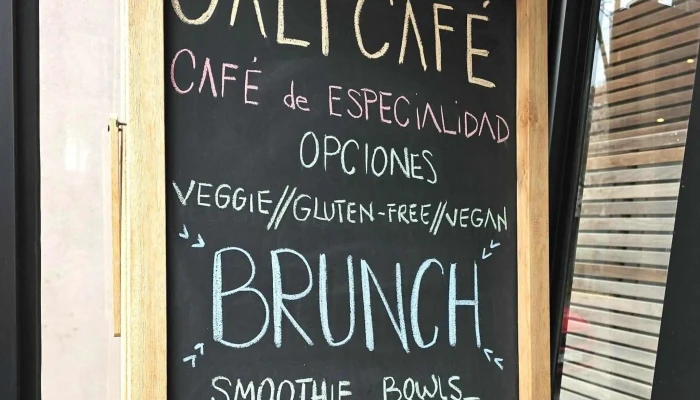 CAFÉ
CAFÉ de ESPECIALIDAD
OPCIONES
VEGGIE//GLUTEN-FREE//VEGAN
BRUNCH
SMOOTHIE BOWLS_